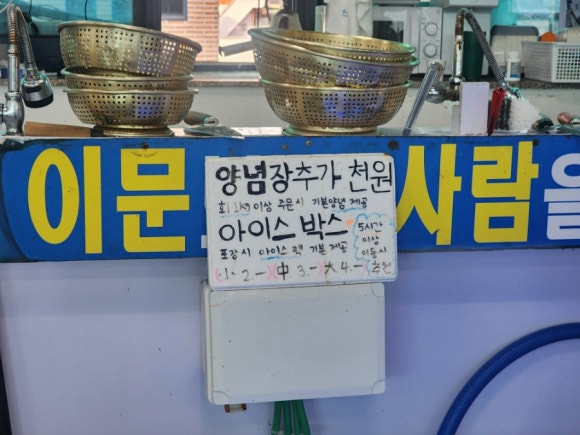 이문 사람을
양념장추가 천원
회(1kg) 이상 주문시 기본양념 제공
아이스박스
5시간
이상
이동시
포장시 아이스팩 기본 제공
(小 2.-)(中 3.-)(大 4.- 추천